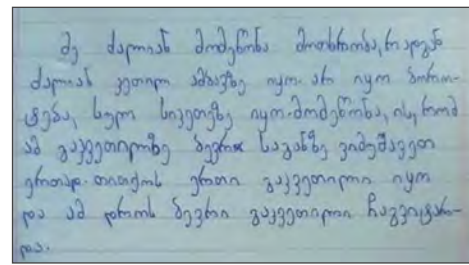 მე ძალიან მომეწონა მოთხრობა, რადგან
ძალიან კეთილ ამბავზე იყო. არ იყო ბორო-
ტება, სულ სიკეთეზე იყო. მომეწონა, ის, რომ
ამ გაკვეთილზე ბევრ საგანზე ვიმუშავეთ
ერთად. თითქოს ერთი გაკვეთილი იყო
და ამ დროს ბევრი გაკვეთილი ჩაგვიტარ-
და.